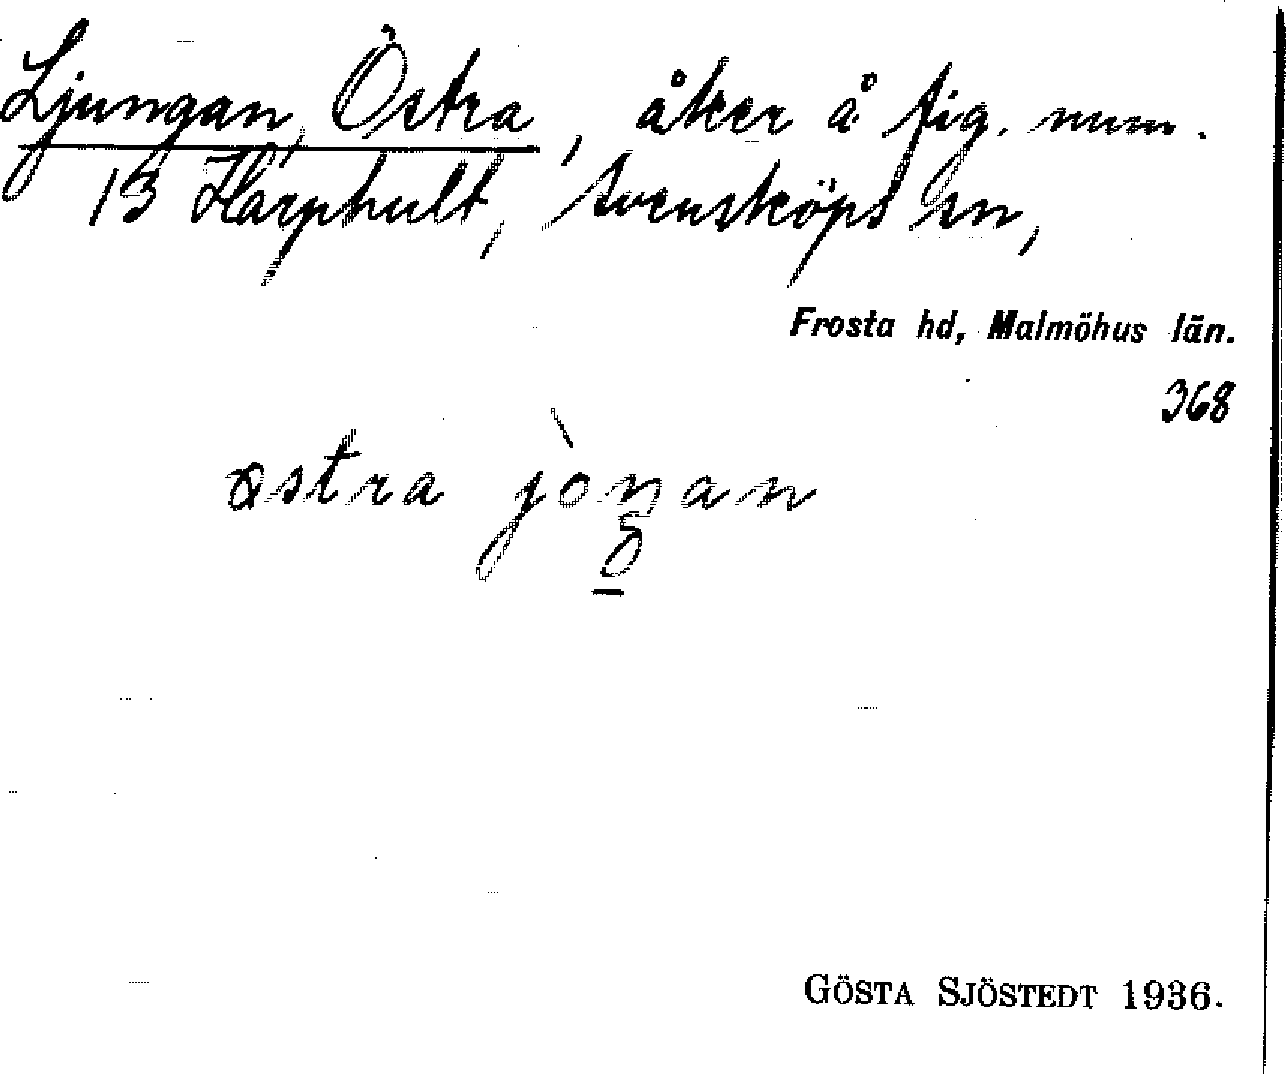 Ljungan, Östra, åker å fig. num.
13 Härphult, Svensköps sn,
Frosta hd, Malmöhus län.
368
östra jòŋan
GÖSTA SJÖSTEDT 1936.